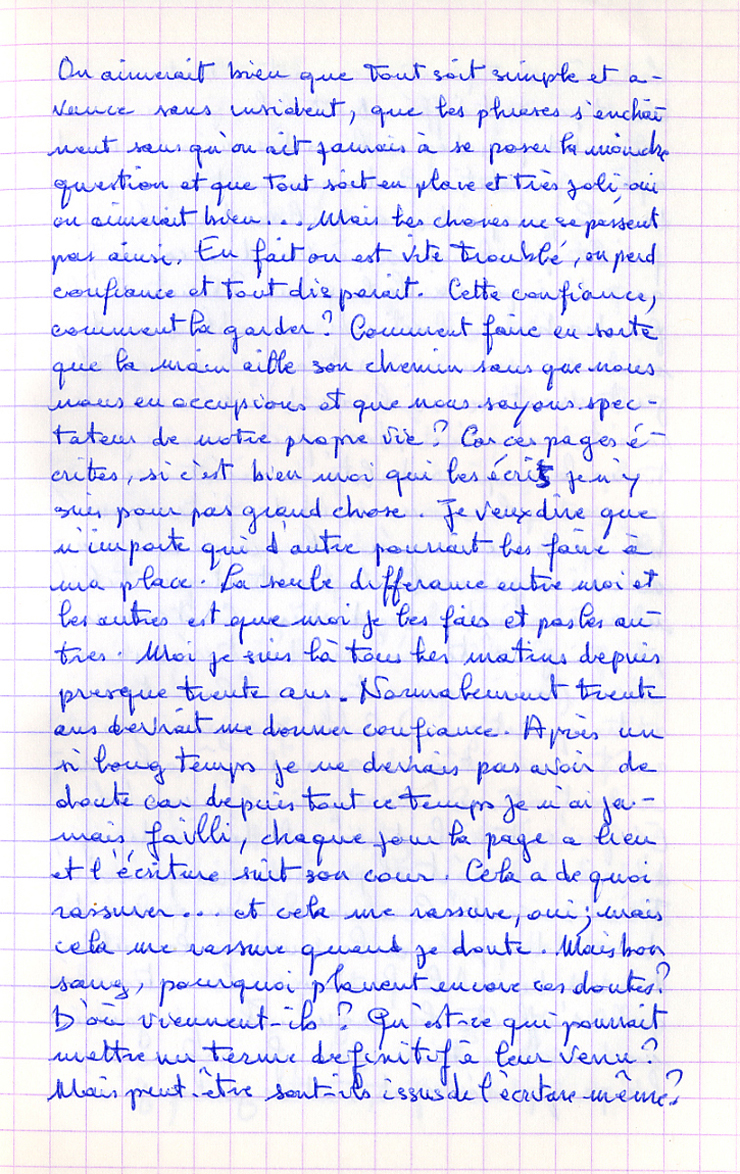 On aimerait bien que tout soit simple et a-
vance sans insident, que les phrases s'enchaî
nent sans qu'on ait jamais à se poser la moindre
question et que tout soit en place et très joli, oui
on aimerait bien... Mais les choses ne se passent
pas ainsi. En fait on est vite troublé, on perd
confiance et tout disparait. Cette confiance,
comment la garder? Comment faire en sorte
que la main aille son chemin sans que nous
nous en occupions et que nous soyons spec-
tateur de notre propre vie? Car ces pages é-
crites, si c'est bien moi qui les écris je n'y
suis pour pas grand chose. Je veux dire que
n'importe qui d'autre pourrait les faire à
ma place. La seule differance entre moi et
les autres est que moi je les fais et pas les au-
tres. Moi je suis là tous les matins depuis
presque trente ans. Normalement trente
ans devrait me donner confiance. Après un
si long temps je ne devrais pas avoir de
doute car depuis tout ce temps je n'ai ja-
mais failli, chaque jour la page a lieu
et l'écriture suit son cour. Cela a de quoi
rassurer... et cela me rassure, oui; mais
cela me rassure quand je doute. Mais bon
sang, pourquoi planent encore ces doutes?
D'où viennent-ils? Qu'est-ce qui pourrait
mettre un terme definitif à leur venu?
Mais peut-être sont-ils issus de l'ecriture même?